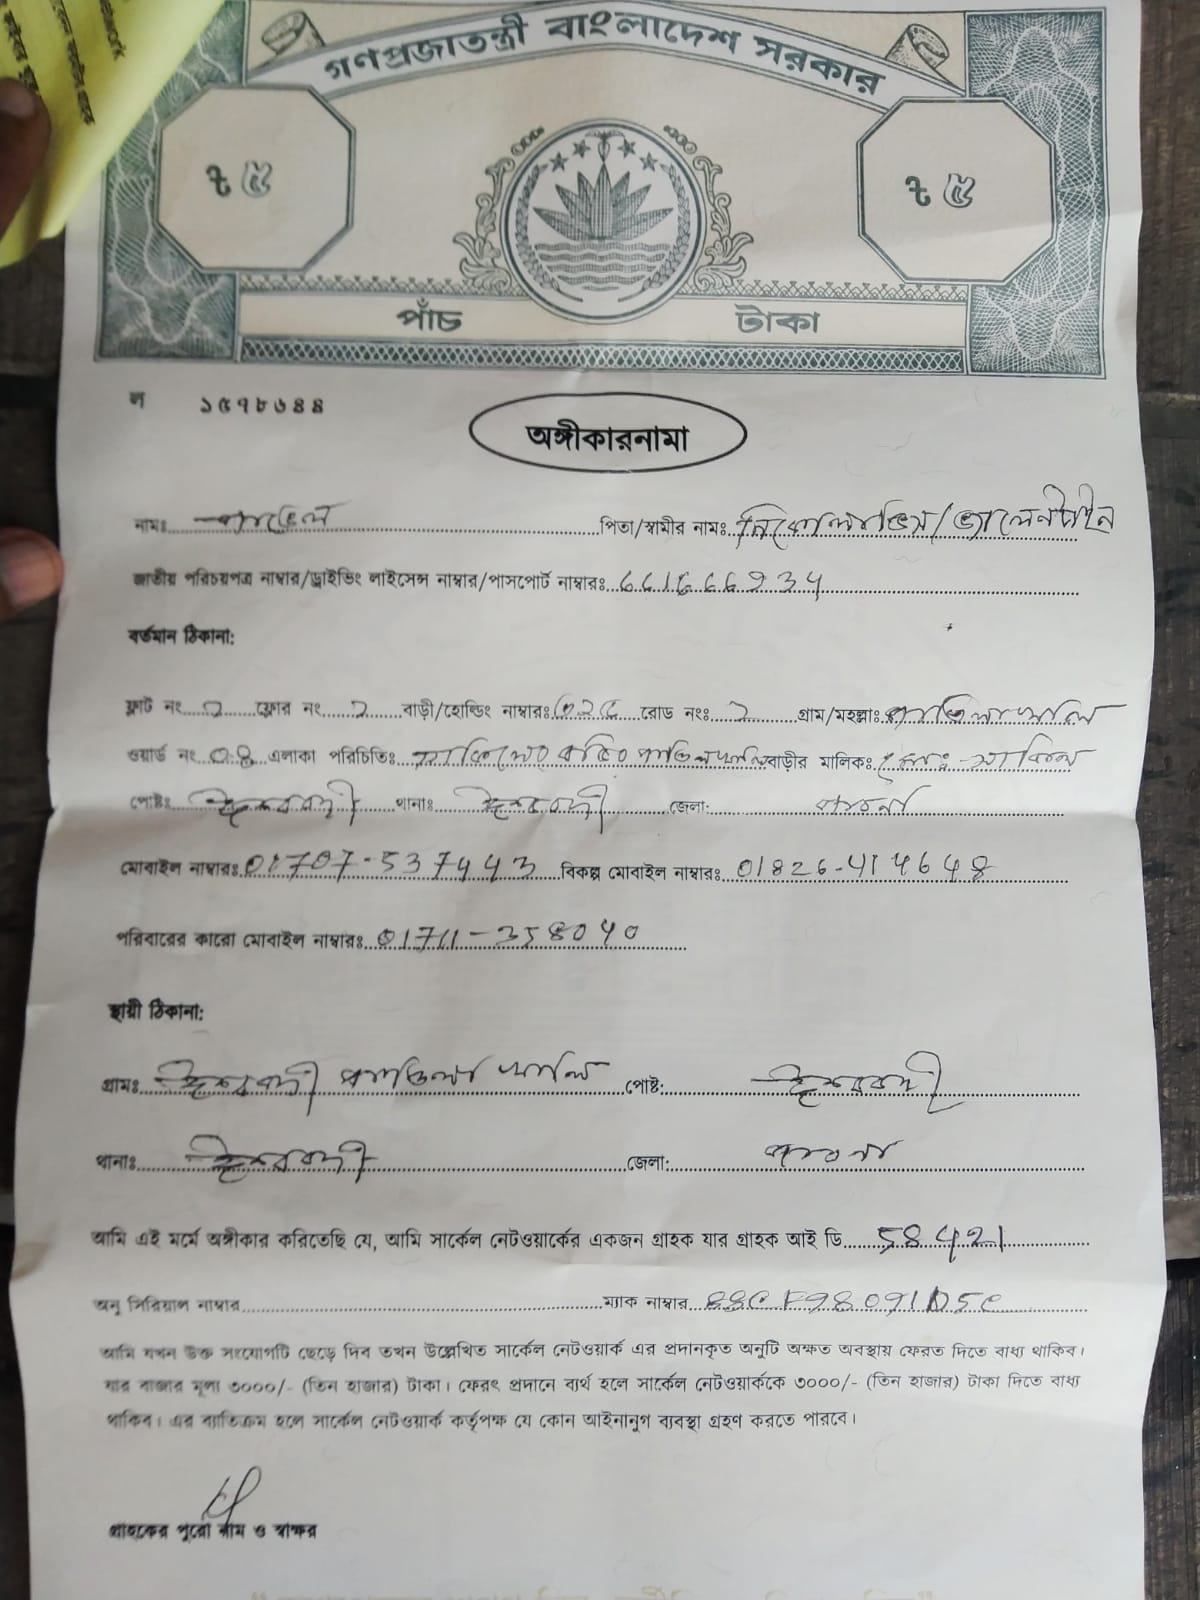 গণপ্রজাতন্ত্রী বাংলাদেশ সরকার
৳ ৫ ৳ ৫
পাঁচ টাকা
ল ১৫৭৮৬৪৪
অঙ্গীকারনামা
নামঃ পাভেল পিতা/স্বামীর নামঃ
জাতীয় পরিচয়পত্র নাম্বার/ড্রাইভিং লাইসেন্স নাম্বার/পাসপোর্ট নাম্বারঃ
বর্তমান ঠিকানা:
ফ্লাট নং ২ ফ্লোর নং ২ বাড়ী/হোল্ডিং নাম্বারঃ রোড নংঃ ২ গ্রাম/মহল্লাঃ
ওয়ার্ড নং ০৪ এলাকা পরিচিতিঃ বাড়ীর মালিক:
পোষ্টঃ ঈশ্বরদী থানাঃ ঈশ্বরদী জেলা: পাবনা
মোবাইল নাম্বারঃ 01707-537443 বিকল্প মোবাইল নাম্বারঃ 01826-414648
পরিবারের কারো মোবাইল নাম্বারঃ 01711-358040
স্থায়ী ঠিকানা:
গ্রামঃ ঈশ্বরদী পোষ্ট: ঈশ্বরদী
থানাঃ ঈশ্বরদী জেলা: পাবনা
আমি এই মর্মে অঙ্গীকার করিতেছি যে, আমি সার্কেল নেটওয়ার্কের একজন গ্রাহক যার গ্রাহক আই ডি 58421
অনু সিরিয়াল নাম্বার ম্যাক নাম্বার
আমি যখন উক্ত সংযোগটি ছেড়ে দিব তখন উল্লেখিত সার্কেল নেটওয়ার্ক এর প্রদানকৃত অনুটি অক্ষত অবস্থায় ফেরত দিতে বাধ্য থাকিব।
যার বাজার মূল্য ৩০০০/- (তিন হাজার) টাকা। ফেরৎ প্রদানে ব্যর্থ হলে সার্কেল নেটওয়ার্ককে ৩০০০/- (তিন হাজার) টাকা দিতে বাধ্য
থাকিব। এর ব্যতিক্রম হলে সার্কেল নেটওয়ার্ক কর্তৃপক্ষ যে কোন আইনানুগ ব্যবস্থা গ্রহণ করতে পারবে।
গ্রাহকের পুরো নাম ও স্বাক্ষর